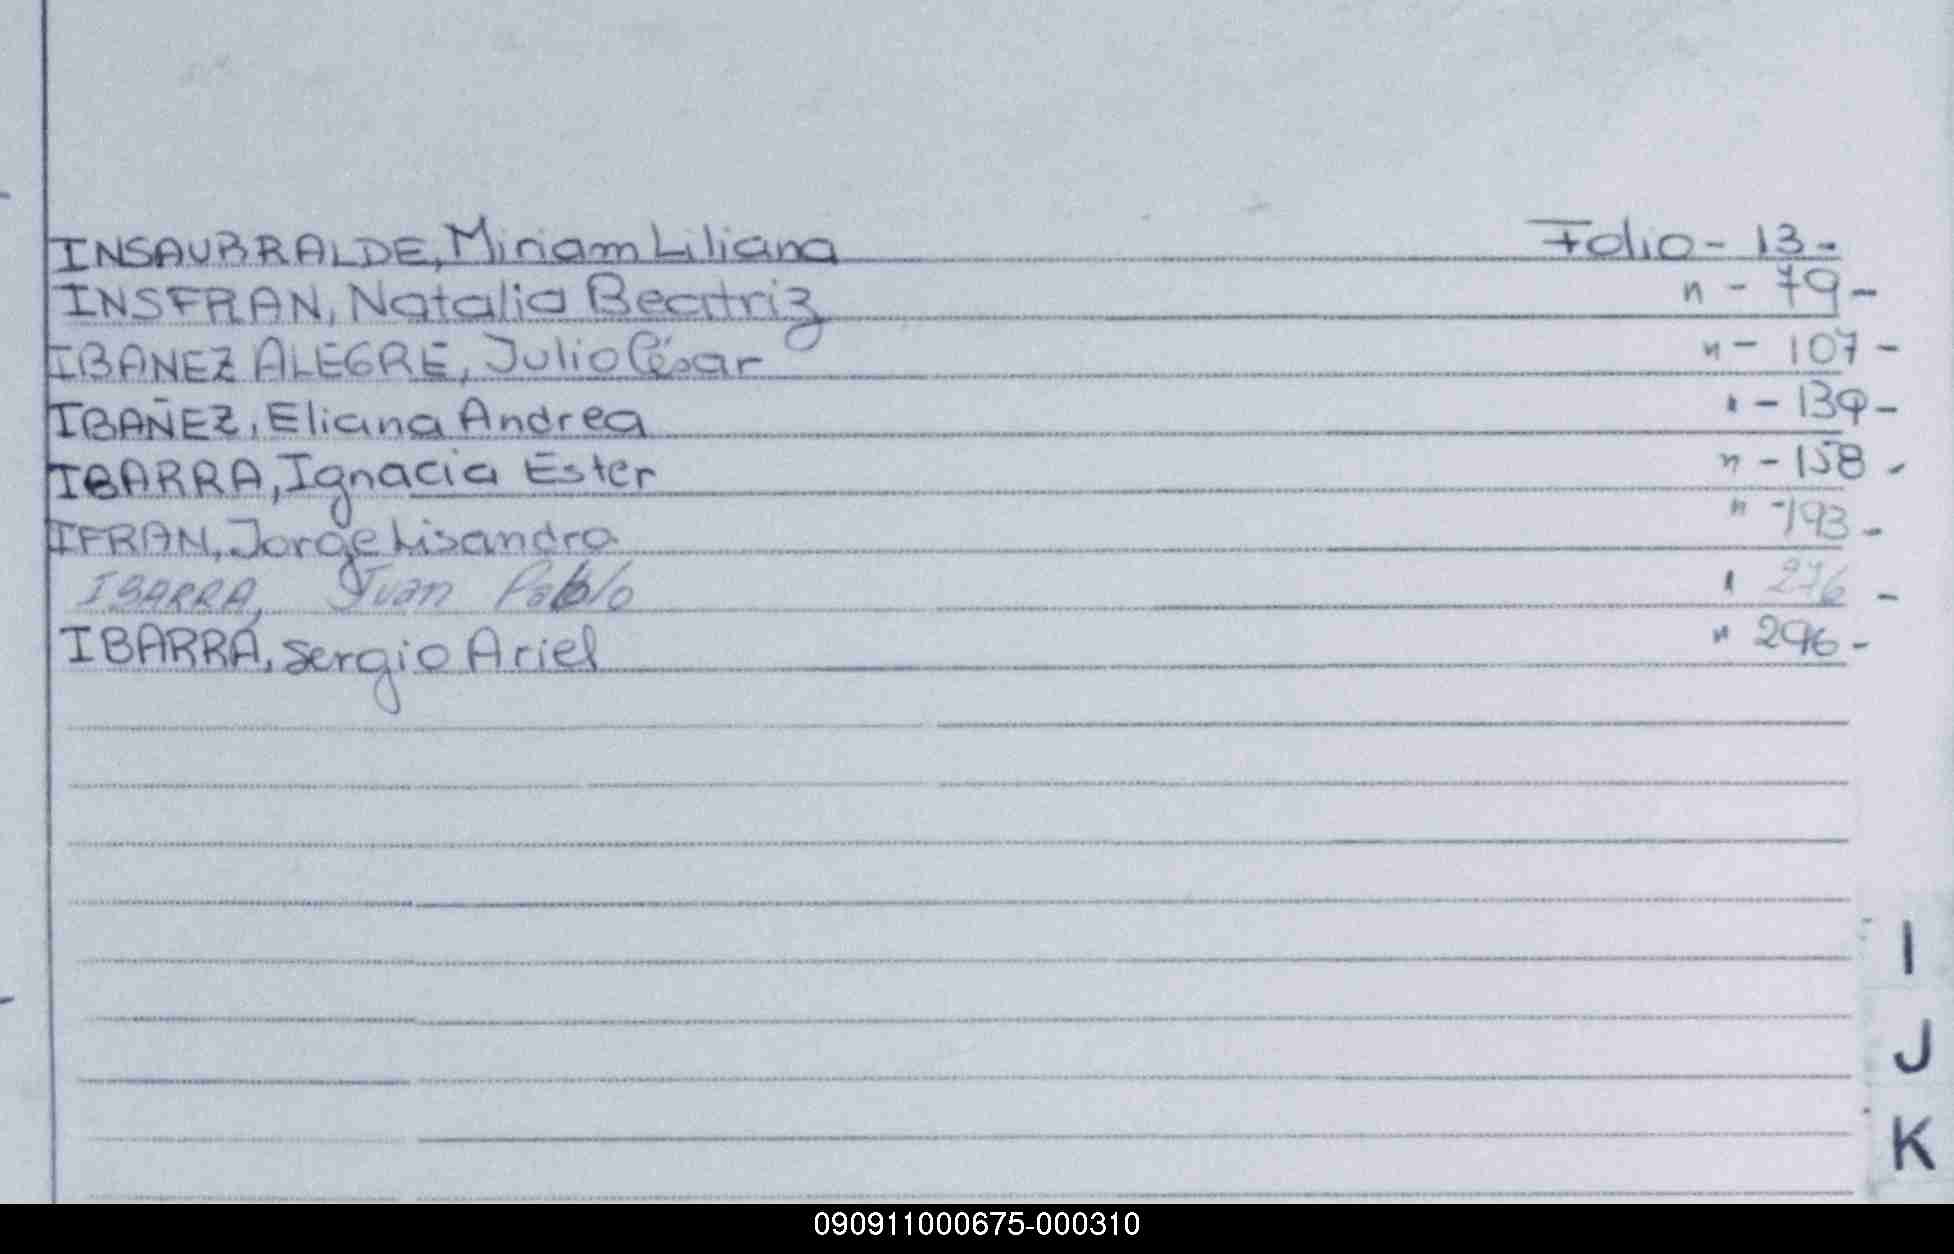 INSAUBRALDE, Miriam Liliana Folio - 13 -
INSFRAN, Natalia Beatriz " - 79 -
IBANEZ ALEGRE, Julio César " - 107 -
IBAÑEZ, Eliana Andrea " - 139 -
IBARRA, Ignacia Ester " - 158 -
IFRAN, Jorge Lisandro " - 193 -
IBARRA, Juan Pablo " 276 -
IBARRA, Sergio Ariel " 296 -
I
J
K
090911000675-000310